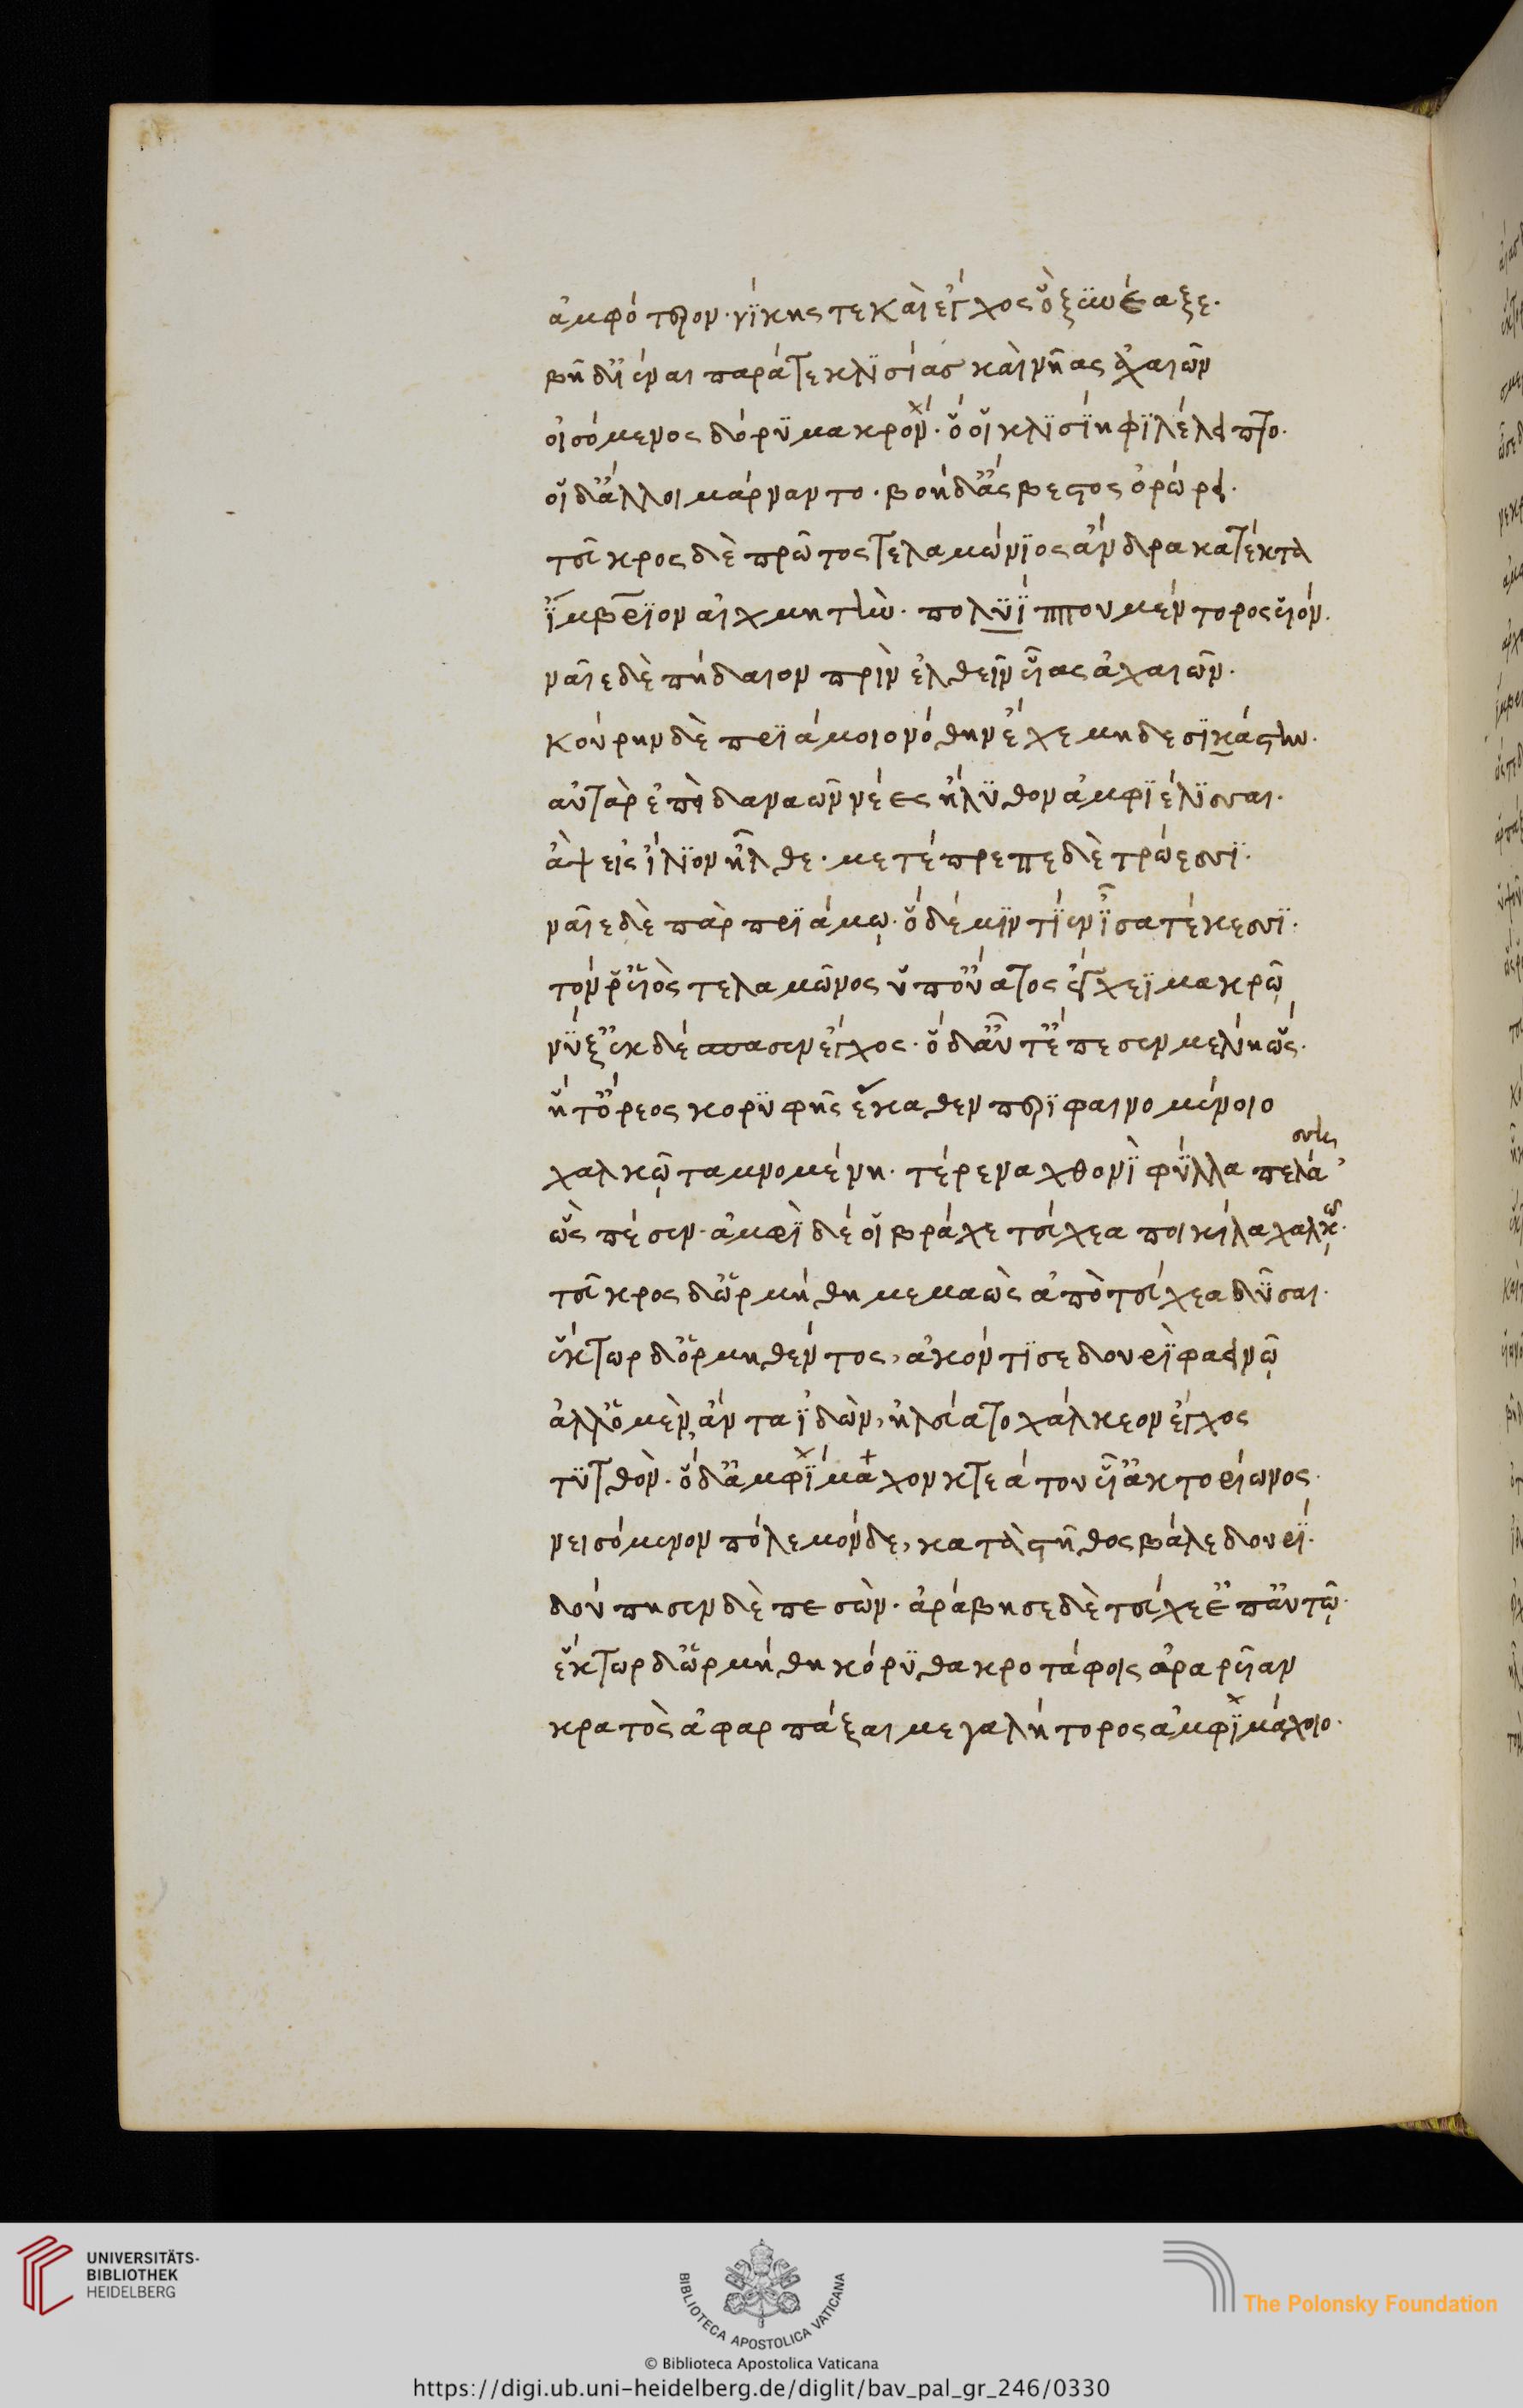 ἀμφότερον· νίκης τε καὶ ἔγχος ὃ ξυνέαξε·
βῆ δ' ἰέναι παρά τε κλισίας καὶ νῆας ἀχαιῶν
οἰσόμενος δόρυ μακρόν· ὅ οἱ κλισίηφι λέλειπτο·
οἱ δ' ἄλλοι μάρναντο· βοὴ δ' ἄσβεστος ὀρώρει·
τεῦκρος δὲ πρῶτος τελαμώνιος ἄνδρα κατέκτα
ἴμβριον αἰχμητὴν· πολυΐππου μέντορος υἱόν·
ναῖε δὲ πήδαιον πρὶν ἐλθεῖν υἷας ἀχαιῶν·
κούρην δὲ πριάμοιο νόθην ἔχε μηδεσικάστην·
αὐτὰρ ἐπεὶ δαναῶν νέες ἤλυθον ἀμφιέλισσαι·
ἂψ εἰς ἴλιον ἦλθε· μετέπρεπε δὲ τρώεσσι·
ναῖε δὲ πὰρ πριάμῳ· ὁ δέ μιν τίεν ἶσα τέκεσσι·
τόν ῥ' υἱὸς τελαμῶνος ὑπ' οὔατος ἔγχεϊ μακρῷ
νύξ' ἐκ δ' ἔσπασεν ἔγχος· ὁ δ' αὖτ' ἔπεσεν μελίη ὥς·
ἥ τ' ὄρεος κορυφῆς ἕκαθεν περιφαινομένοιο
χαλκῷ ταμνομένη· τέρενα χθονὶ φύλλα πελάσσῃ
ὣς πέσεν· ἀμφὶ δέ οἱ βράχε τεύχεα ποικίλα χαλκῷ·
τεῦκρος δ' ὡρμήθη μεμαὼς ἀπὸ τεύχεα δῦσαι·
ἕκτωρ δ' ὁρμηθέντος, ἀκόντισε δουρὶ φαεινῷ
ἀλλ' ὃ μὲν, ἄντα ἰδὼν, ἠλεύατο χάλκεον ἔγχος
τυτθὸν· ὁ δ' ἀμφίμαχον κτεάτου υἷ' ἀκτορίωνος·
νεισόμενον πόλεμόνδε, κατὰ στῆθος βάλε δουρί·
δούπησεν δὲ πεσὼν· ἀράβησε δὲ τεύχε' ἐπ' αὐτῷ·
ἕκτωρ δ' ὡρμήθη κόρυθα κροτάφοις ἀραρυῖαν
κρατὸς ἀφαρπάξαι μεγαλήτορος ἀμφιμάχοιο·
UNIVERSITÄTS-
BIBLIOTHEK
HEIDELBERG
BIBLIOTECA APOSTOLICA VATICANA
The Polonsky Foundation
© Biblioteca Apostolica Vaticana
https://digi.ub.uni-heidelberg.de/diglit/bav_pal_gr_246/0330